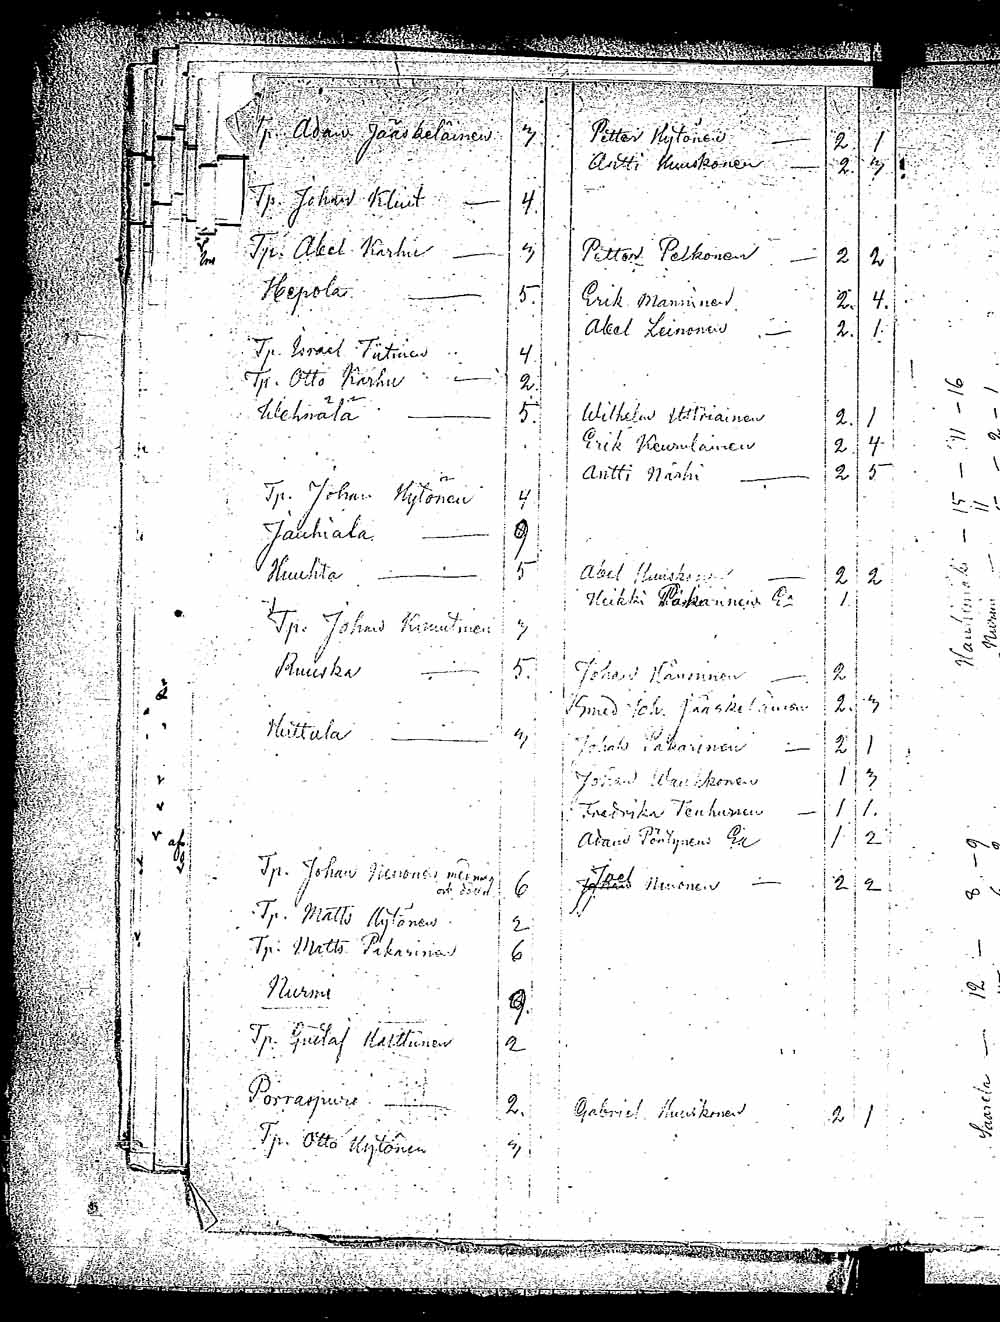 Tp. Adam Jääskeläinen 3 Petter Kytönen — 2. 1
Antti Kuuskonen — 2. 3
Tp. Johan Kluit — 4.
Tp. Abel Karhu — 3 Petter Pelkonen — 2 2
Hepola — 5. Erik Manninen 2. 4.
Abel Leinonen — 2. 1.
Tp. Israel Tiitinen 4
Tp. Otto Karhu — 2.
Wehnälä — 5. Wilhelm 2. 1
Erik Keuruläinen 2 4
Antti Närhi — 2 5
Tp. Johan Kytönen 4
Jauhiala — 9
Huuhta — 5 Abel Kuuskonen — 2 2
Heikki Pakarinens Ea 1
Tp. Johan Knuutinen 3
Ruuska — 5. Johan — 2
Smed Joh. Jääskeläinen 2. 3
Huttula — 3 Johan Pakarinen — 2 1
Johan 1 3
Fredrika Tenhunen — 1 1.
Adam Pöntynens Ea 1 2
Tp. Johan Nenonen 6 Joel Nenonen — 2 2
Tp. Matts Kytönen 2
Tp. Matts Pakarinen 6
Nurmi 9.
Tp. Gustaf Karttunen 2
Porraspuro — 2. Gabriel Kuuskonen 2 1
Tp. Otto Kytönen 3
— 15 — 11 — 16
Nurmi — 11
Saarela — 12 — 8 - 9